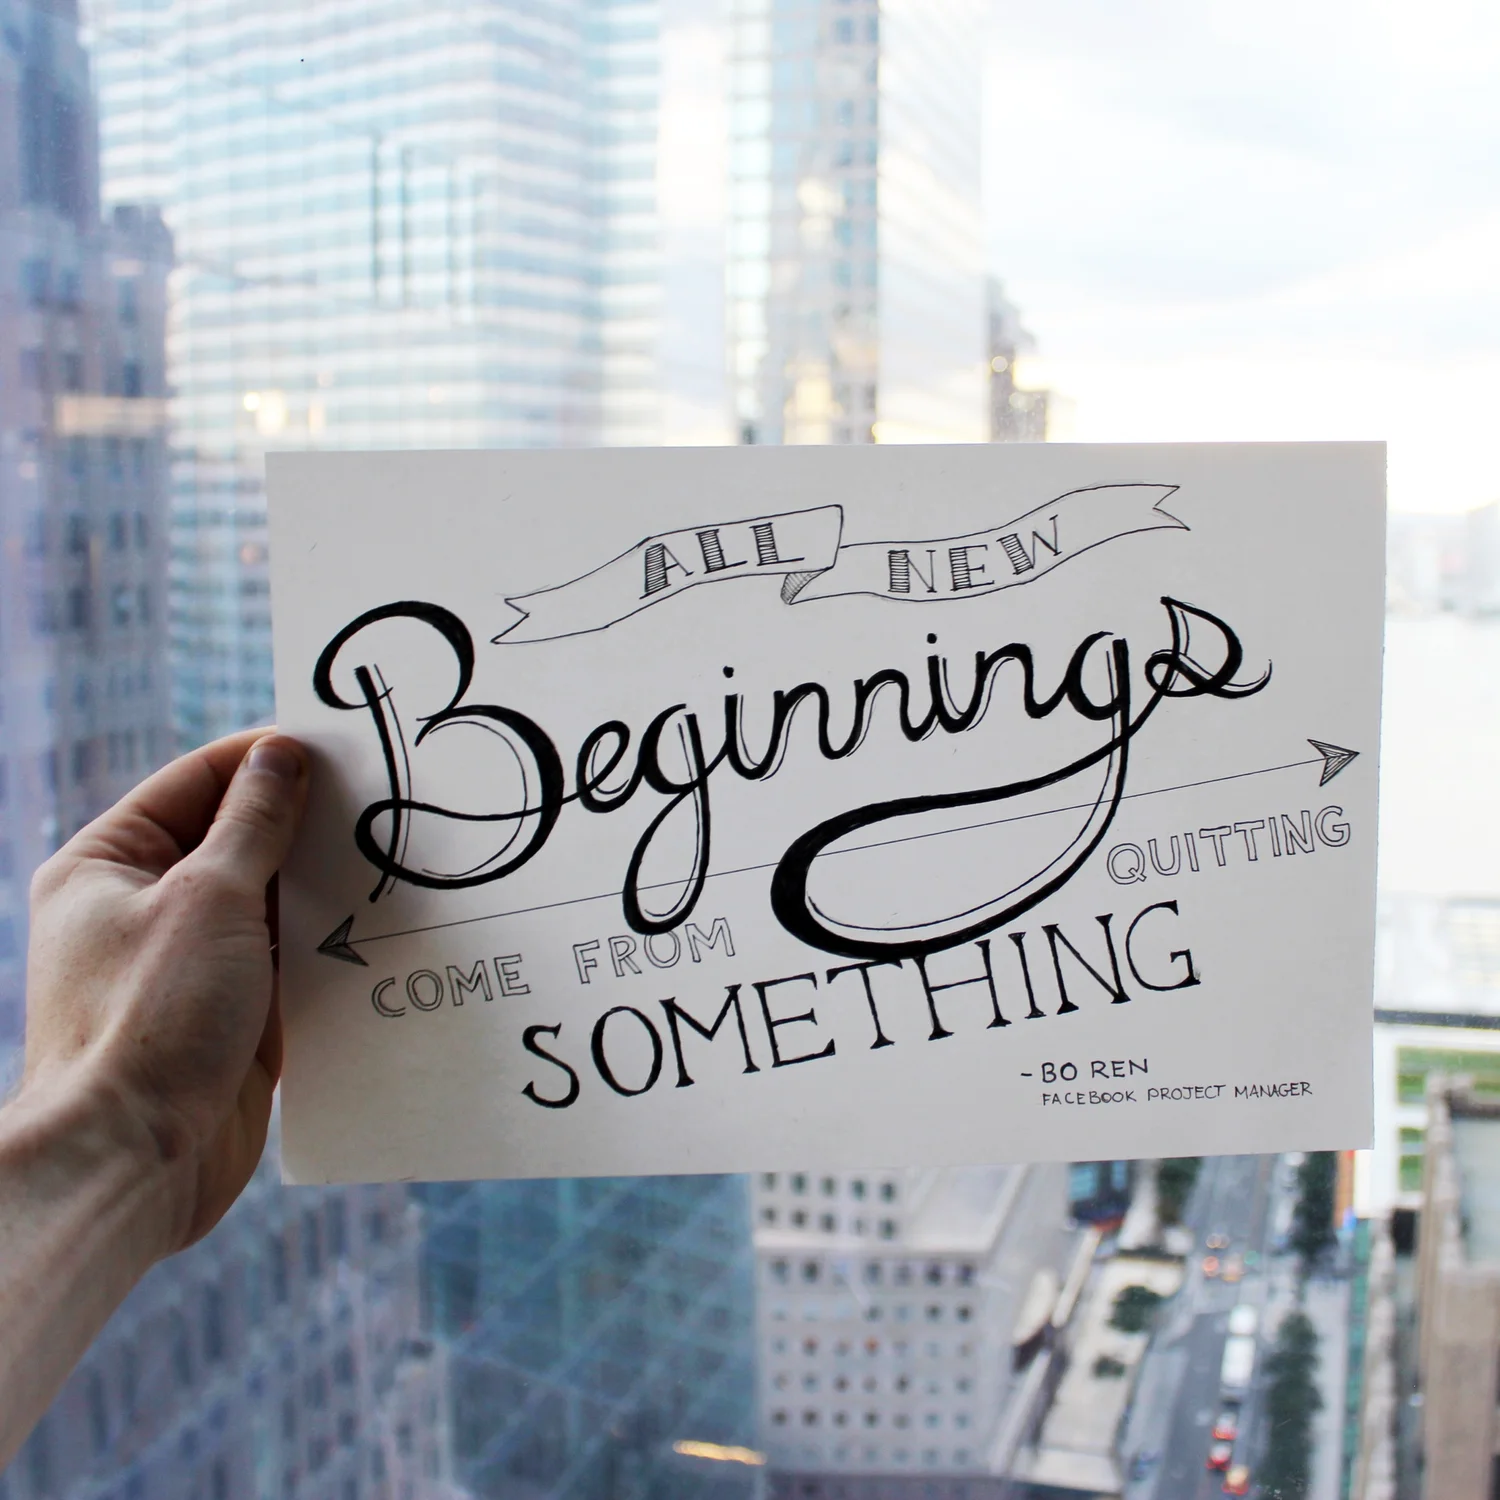 ALL NEW
Beginnings
COME FROM QUITTING
SOMETHING
- BO REN
FACEBOOK PROJECT MANAGER